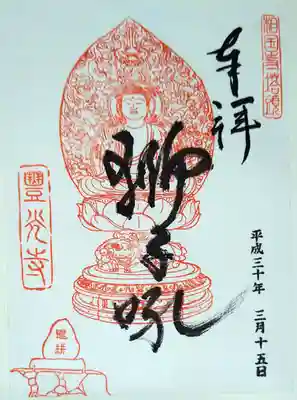 相国寺塔頭
奉拝
獅子吼
平成三十年 三月十五日
豐光寺
退耕